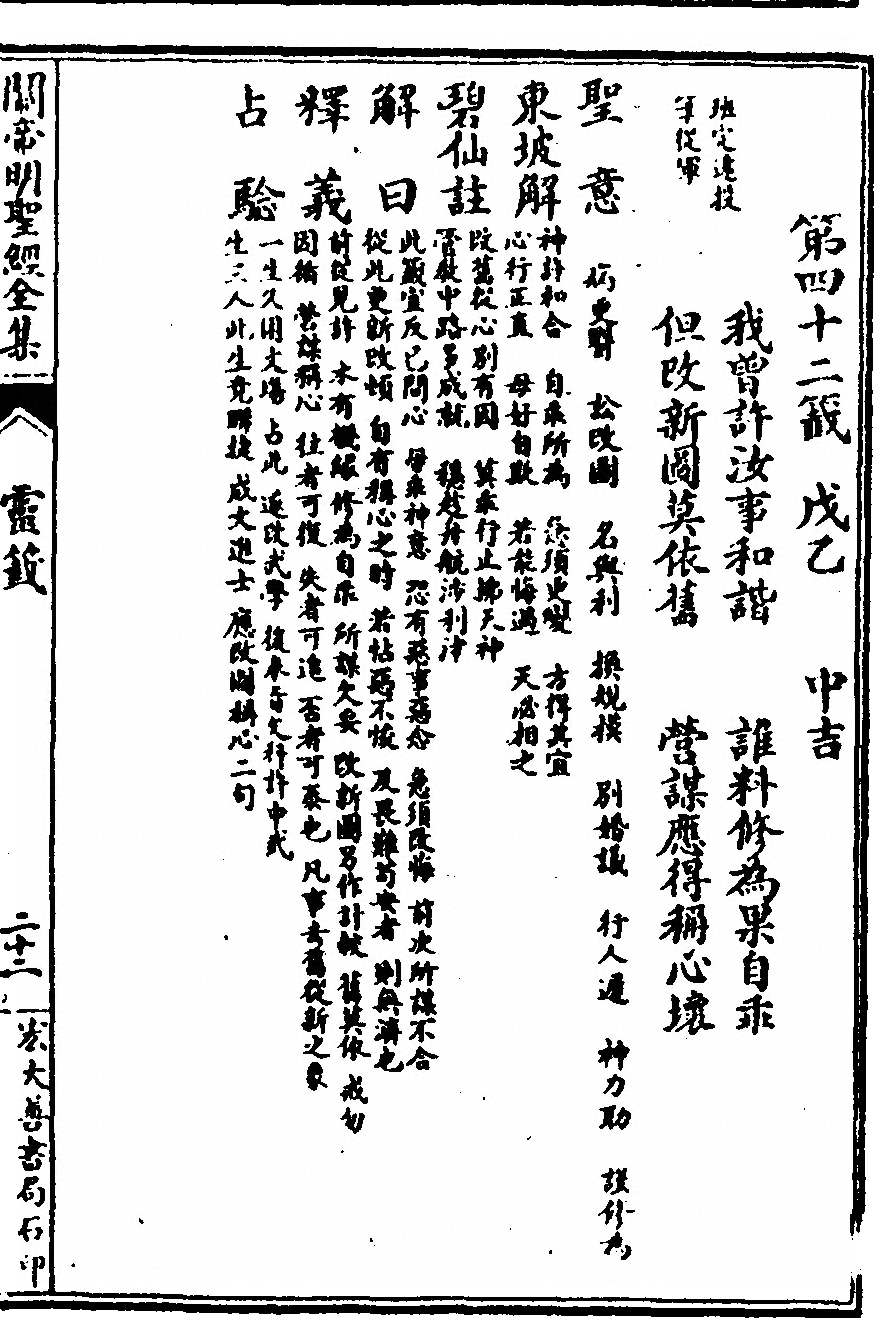 第四十二籤　戊乙　中吉
我曾許汝事和諧　誰料修為果自乖
但改新圖莫依舊　營謀應得稱心壞
班定遠投
筆從軍
聖意　病更醫　訟改圖　名與利　換規模　別婚議　行人遲　神力助　謹修為
東坡解　神許和合　自乖所為　急須更變　方得其宜
心行正直　毋好自欺　若能悔過　天必相之
碧仙註　改舊從心別有因　莫乖行止拂天神
中路多成就　穩趁舟航涉利津
解曰　此籤宜反己問心　毋乖神意　恐有惡事惡念　急須改悔　前次所謀不合
從此更新改頓　自有稱心之時　若怙惡不悛　及畏難苟安者　則無濟也
釋義　前從見許　木有機緣　修為自乖　所謀欠妥　改新圖另作計較　舊莫依　戒勿
因循　營謀稱心　往者可復　失者可追　否者可泰也　凡事去舊從新之象
占驗　一生久困文場　占此　遂改武學　後來首文科許中武
生三人此生竟聯捷　成文進士　應改圖稱心二句
關帝明聖經全集
靈籤
二十二
大善書局石印